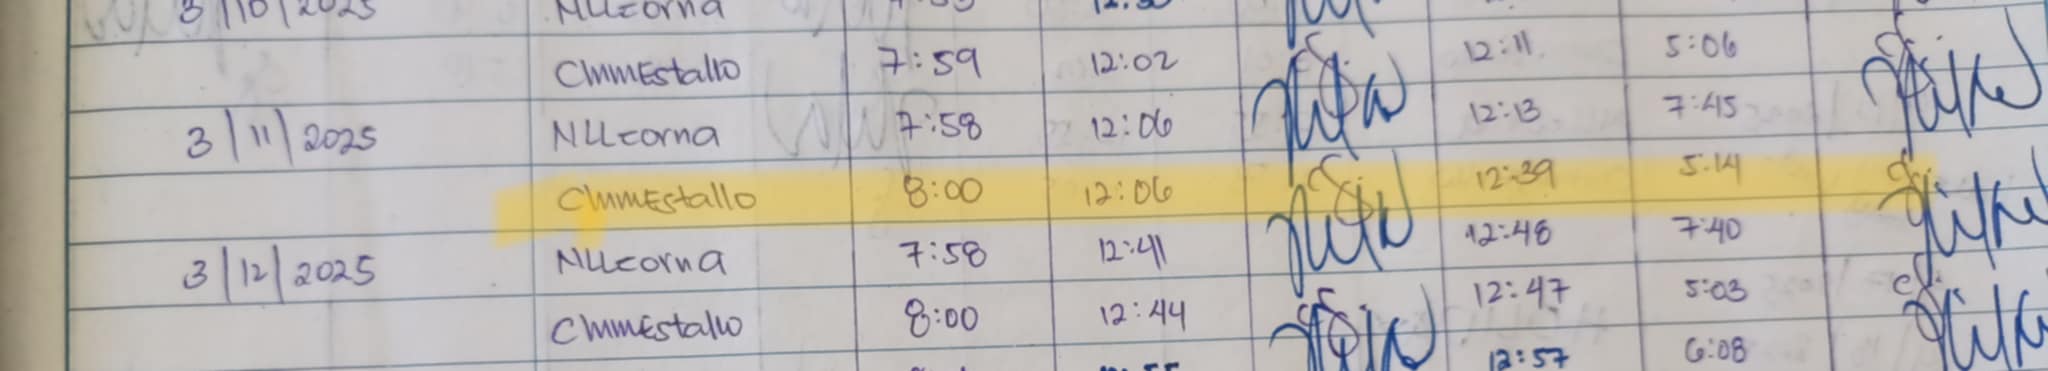 3/10/2025 NLLcorna
CMMEstallo 7:59 12:02 12:11 5:06
3/11/2025 NLLcorna 7:58 12:06 12:13 7:45
CMMEstallo 8:00 12:06 12:39 5:14
3/12/2025 NLLcorna 7:58 12:41 12:48 7:40
CMMEstallo 8:00 12:44 12:47 5:03
12:57 6:08